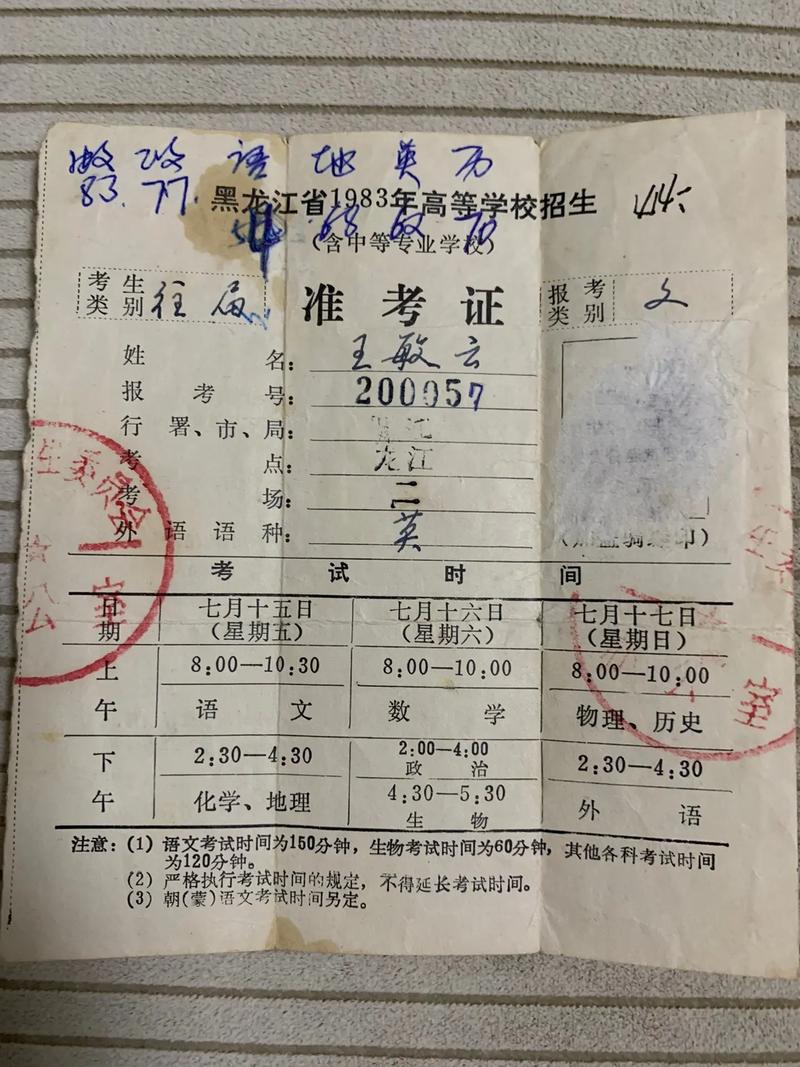 数 政 语 地 英 历
83. 77.
黑龙江省1983年高等学校招生
68
(含中等专业学校)
考生类别 往届
准考证
报考类别 文
姓名: 王敏云
报考号: 200957
行署、市、局:
考点: 龙江
考场: 二
外语语种: 英
考试时间
日期 七月十五日(星期五) 七月十六日(星期六) 七月十七日(星期日)
上午 8:00—10:30 8:00—10:00 8:00—10:00
语文 数学 物理、历史
下午 2:30—4:30 2:00—4:00 政治 2:30—4:30
化学、地理 4:30—5:30 生物 外语
注意:(1) 语文考试时间为150分钟,生物考试时间为60分钟,其他各科考试时间
为120分钟。
(2) 严格执行考试时间的规定,不得延长考试时间。
(3) 朝(蒙)语文考试时间另定。